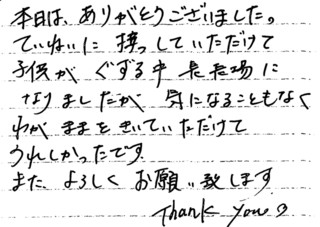 本日は、ありがとうございました。
ていねいに 接っしていただけて
子供が ぐずる中 長長場に
なりましたが 気になることもなく
わがままをきいていただけて
うれしかったです。
また よろしく お願い致します
Thank you